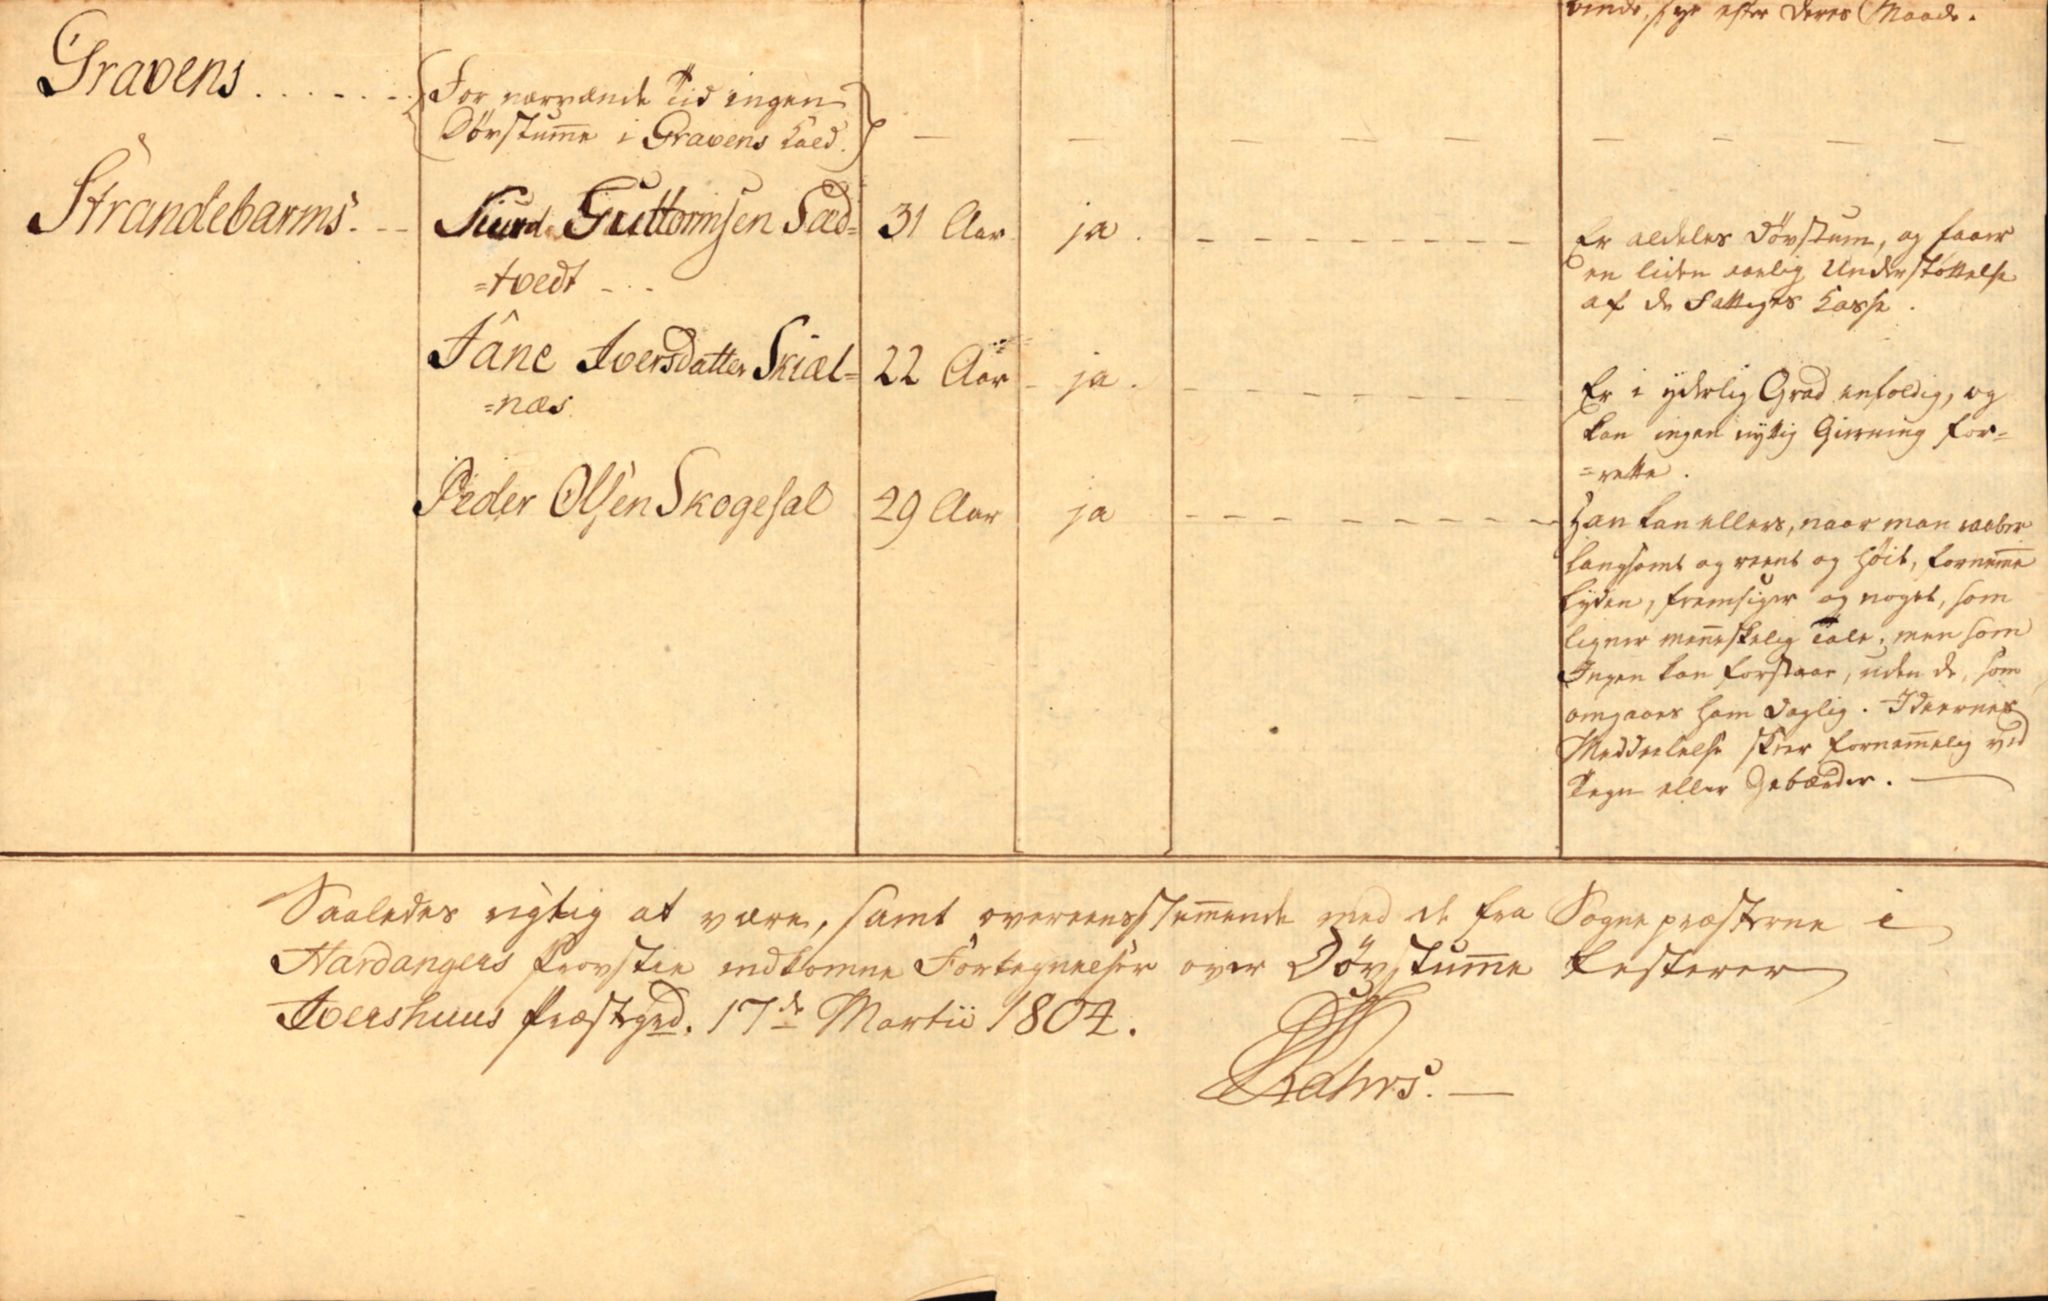 binde, sye efter deres Maade.
Gravens . . . . . .
For nærværende Tid ingen
Døvstum̅e i Gravens Kald.
Strandebarms. - -
Siurd Guttormsen Sæd= 31 Aar ja.
=tvedt - . .
Er aldeles Døvstum, og faaer
en liden aarlig Understøttelse
af de Fattiges Kasse.
Jâne Iversdatter Skiæl= 22 Aar ja.
=næs
Er i yderlig Grad enfoldig, og
kan ingen nyttig Gierning for=
=rette.
Peder Olsen Skogesal 29 Aar ja
Han kan ellers, naar man raaber
langsomt og reent og høit, fornem̅e
Lyden, fremsiger og noget, som
ligner men̅eskelig Tale, men som
Ingen kan forstaae, uden de, som
omgaaes ham daglig. Ideernes
Meddeelelse skeer fornem̅elig ved
Tegn eller Gebærder.
Saaledes rigtig at være, samt overeensstem̅ende med de fra Sognepræsterne i
Hardangers Provstie indkomne Fortegnelser over Døvstum̅e testerer
Ivershuus Præstegrd. 17de Martii 1804.
Krahrs.